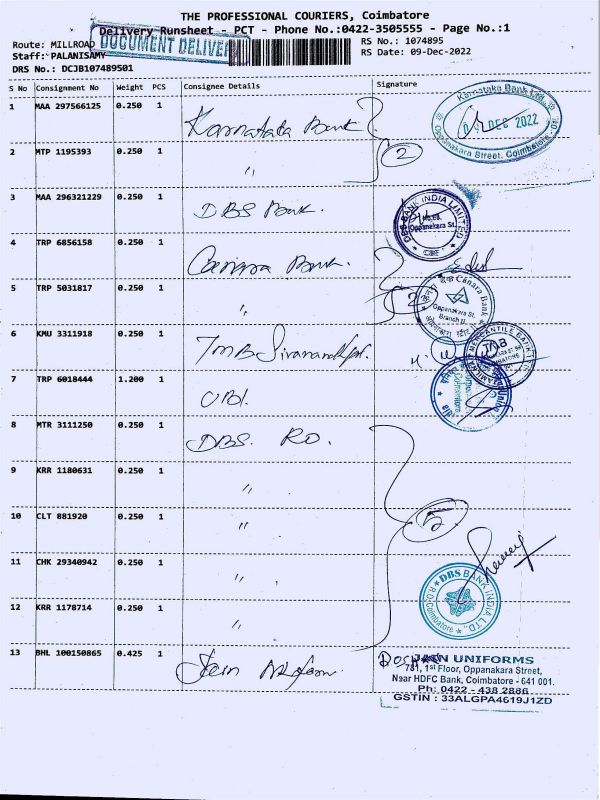 THE PROFESSIONAL COURIERS, Coimbatore
Delivery Runsheet - PCT - Phone No.:0422-3505555 - Page No.:1
Route: MILLROAD
DOCUMENT DELIVER
RS No.: 1074895
Staff: PALANISAMY
RS Date: 09-Dec-2022
DRS No.: DCJB107489501
S No Consignment No Weight PCS Consignee Details Signature
1 MAA 297566125 0.250 1 Karnataka Bank
Karnataka Bank Ltd.
DEC 2022
Oppanakara Street, Coimbatore - 01.
2 MTP 1195393 0.250 1 "
2
3 MAA 296321229 0.250 1 DBS Bank.
DBS BANK INDIA LIMITED
Oppanakara St.
CBE
4 TRP 6856158 0.250 1 Canara Bank.
5 TRP 5031817 0.250 1 "
2
Canara Bank
Oppanakara St.
Branch
6 KMU 3311918 0.250 1 TMB
TAMILNAD MERCANTILE BANK
7 TRP 6018444 1.200 1 UBI.
8 MTR 3111250 0.250 1 DBS. RO.
9 KRR 1180631 0.250 1 "
10 CLT 881920 0.250 1 "
5
11 CHK 29340942 0.250 1 "
12 KRR 1178714 0.250 1 "
DBS BANK INDIA LTD.
R.O. Coimbatore
13 BHL 100150865 0.425 1 Jain
JAIN UNIFORMS
781, 1st Floor, Oppanakara Street,
Near HDFC Bank, Coimbatore - 641 001.
Ph: 0422 - 438 2886
GSTIN : 33ALGPA4619J1ZD